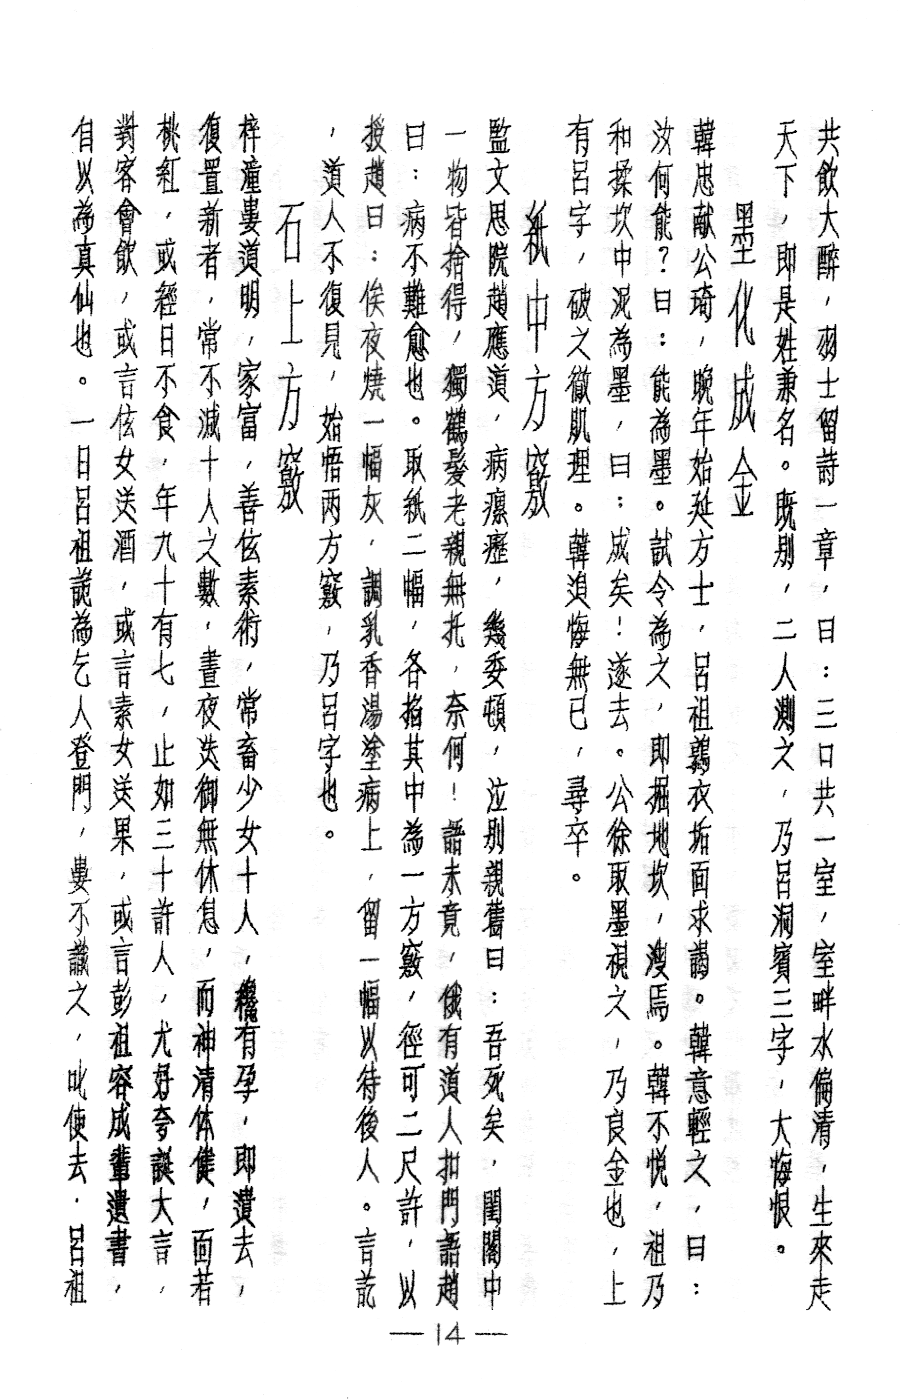 共飲大醉，羽士留詩一章，曰：三口共一室，室畔水偏清，生來走
天下，即是姓兼名。既別，二人測之，乃呂洞賓三字，大悔恨。
墨化成金
韓忠献公琦，晚年始延方士，呂祖鶉衣垢面求謁。韓意輕之，曰：
汝何能？曰：能為墨。試令為之，即掘地坎，溲焉。韓不悅，祖乃
和揉坎中泥為墨，曰：成矣！遂去。公徐取墨視之，乃良金也，上
有呂字，破之徹肌理。韓追悔無已，尋卒。
紙中方竅
監文思院趙應道，病瘰癧，幾委頓，泣別親舊曰：吾死矣，閨閣中
一物皆捨得，獨鶴髮老親無托，奈何！語未竟，俄有道人扣門語趙
曰：病不難愈也。取紙二幅，各掐其中為一方竅，徑可二尺許，以
授趙曰：俟夜燒一幅灰，調乳香湯塗病上，留一幅以待後人。言訖
，道人不復見，始悟兩方竅，乃呂字也。
石上方竅
梓潼婁道明，家富，善伭素術，常畜少女十人，纔有孕，即瀆去，
復置新者，常不減十人之數，晝夜迭御無休息，而神清体健，面若
桃紅，或經日不食，年九十有七，止如三十許人，尤好夸誕大言，
對客會飲，或言伭女送酒，或言素女送果，或言彭祖容成輩遺書，
自以為真仙也。一日呂祖詭為乞人登門，婁不識之，叱使去，呂祖
— 14 —